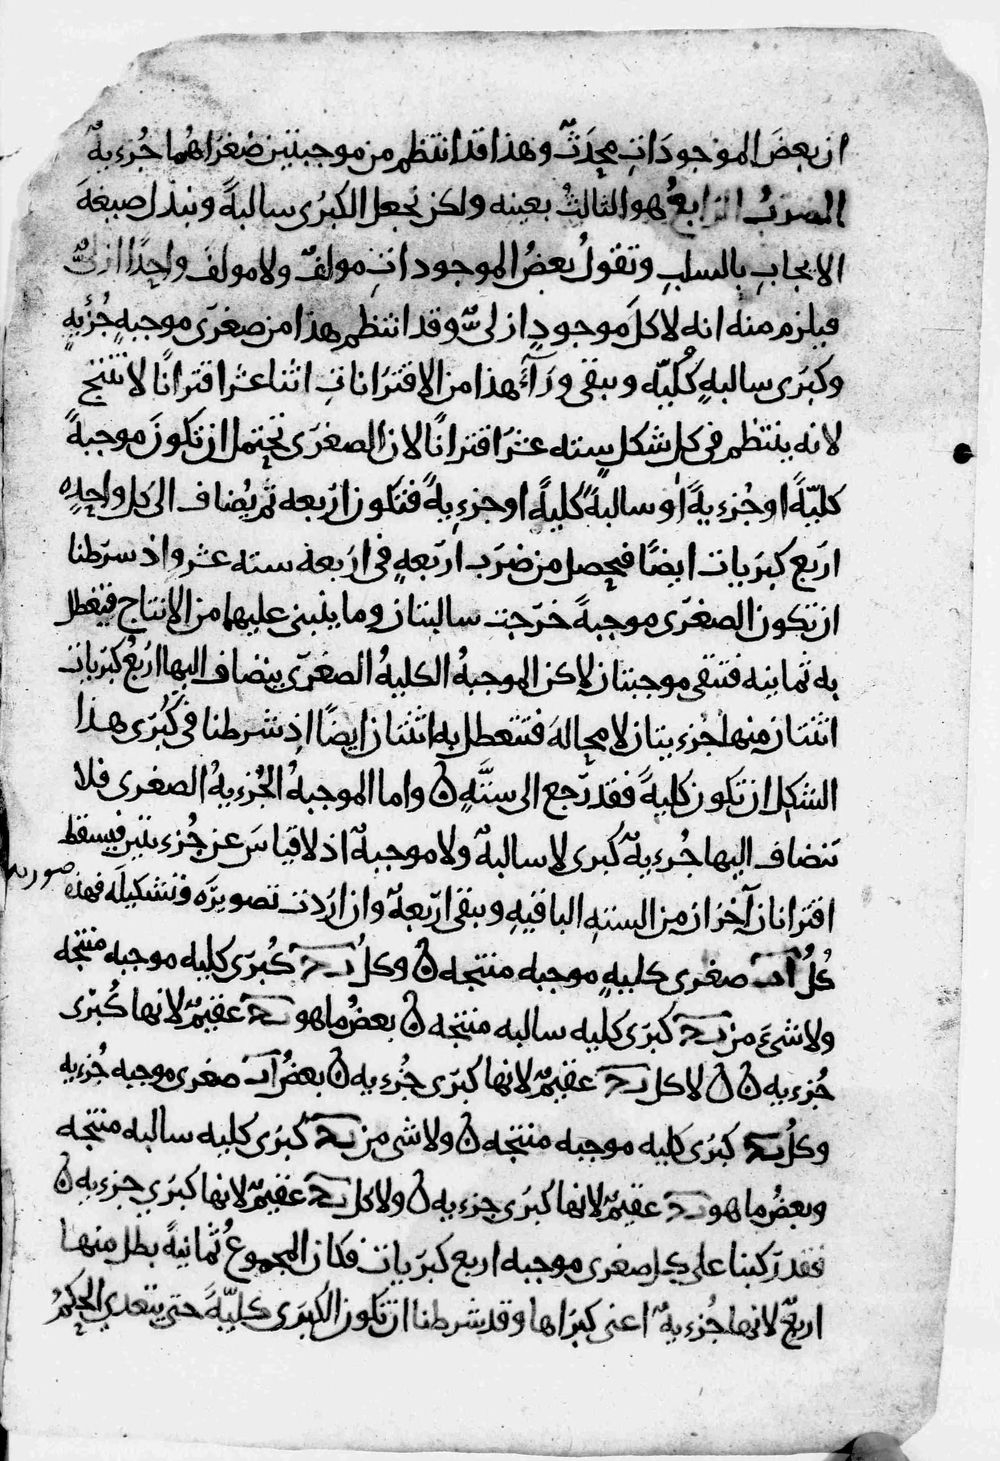 ان بعضَ الموجودَاتِ محدَثٌ وهذا قد انتظم من موجبتين صُغرَاهُما جُزءيةٌ
الضربُ الرَابعُ هو الثالثُ بعينه ولكن نجعل الكبرَى سالبةً ونبدل صيغةَ
الايجابِ بالسلبِ وتقولُ بعضُ الموجوداتِ مولفٌ ولا مولفَ واحِدًا ازلىٌّ
فيلزم منه انه لا كلَ موجودٍ ازلىٌّ وقد انتظم هذا من صغرَى موجبةٍ جُزئيةٍ
وكبرَى سالبةٍ كُليّه ويبقى ورَآءَ هذا من الاقترَاناتِ اثنا عشر اقترانًا لا تنتج
لانه ينتظم فى كل شكل سِته عشرَ اقترانًا لان الصغرَى تحتمل ان تكونَ موجبةً
كليّةً او جُزءيةً اَو سالبةً كليةً او جزءِيةً فتكون ارَبعه ثم يُضاف الى كل واحِدِه
ارَبع كبرَيات ايضًا فيحصل من ضرَب اربعهٍ فى ارَبعة سته عشر واذ سرَطنا
ان تكون الصغرَى موجبةً خرَجت سالبتان وما ينبنى عليهما من الانتاج فيتعطل
به ثمانيه فتبقى موجبتان لاكن الموجبةُ الكليةُ الصغرَى ينضاف اليها ارَبعُ كبرَيات
اثنتان منها جُزءيتان لا محالهَ فتتعطل به اثنتان ايضًا اذ شرطنا فى كُبرَى هذا
الشكل ان تكون كليةً فقد رَجع الى ستَّهٍ ن واما الموجبةُ الجُزءيةُ الصغرى فلا
تنضاف اليها جُزءيةٌ كُبرى لا سالبةٌ ولا موجبةٌ اذ لا قياسَ عن جُزءيتين فيسقط
اقترانان آخرَان من السته الباقيه ويبقى ارَبعةٌ وان ارَدت تصويرَه وتشكيلَه فهذه صورته
كُلُ اب صغرى كليهٍ موجبه منتجه ن وكل بج كُبرَى كليه موجبه منتجه
ولا شىءَ من بج كبرَى كليه سالبه منتجه ن بعضُ ما هو بج عقيمٌ لانها كُبرَى
جُزءيه ن ن لا كل بج عقيمٌ لانها كبرَى جُزءيه ن بعضُ اب صغرى موجبه جُزءيه
وكلُ بج كبرَى كليه موجبه منتجه ن ولا شى من بج كبرَى كليه سالبه منتجه
وبعضُ ما هو بج عقيمٌ لانها كبرَى جزءيه ن ولا كل بج عقيمٌ لانها كبرَي جزءيه ن
فقد رَكبنا على كل صغرى موجبه اربع كبرَيات فكان المجموعُ ثمانيةً بطل منها
اربعٌ لانها جُزءيةٌ اعنى كبرَاها وقد شرطنا ان تكون الكبرَى كليّةً حتى يتعدي الحِكمُ